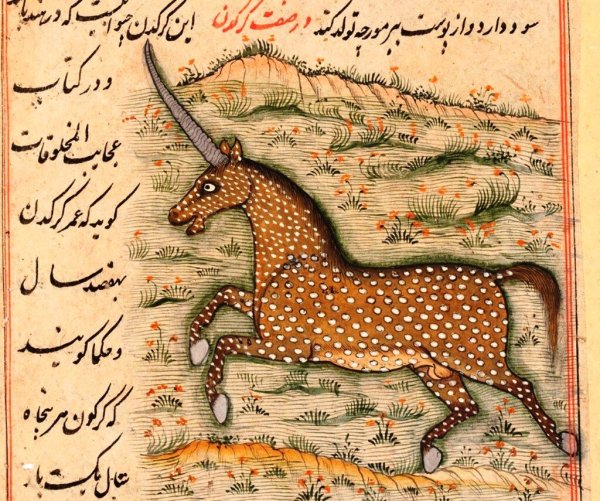 سود دارد و از پوست ببر مورچه تولد کند در صفت کرکدن این کرکدن حیوانیست که در هند باشد
و در کتاب
عجایب المخلوقات
کوید که عمر کرکدن
هفصد سال
و حکما کویند
که کرکدن هر پنجاه
سال یک بار